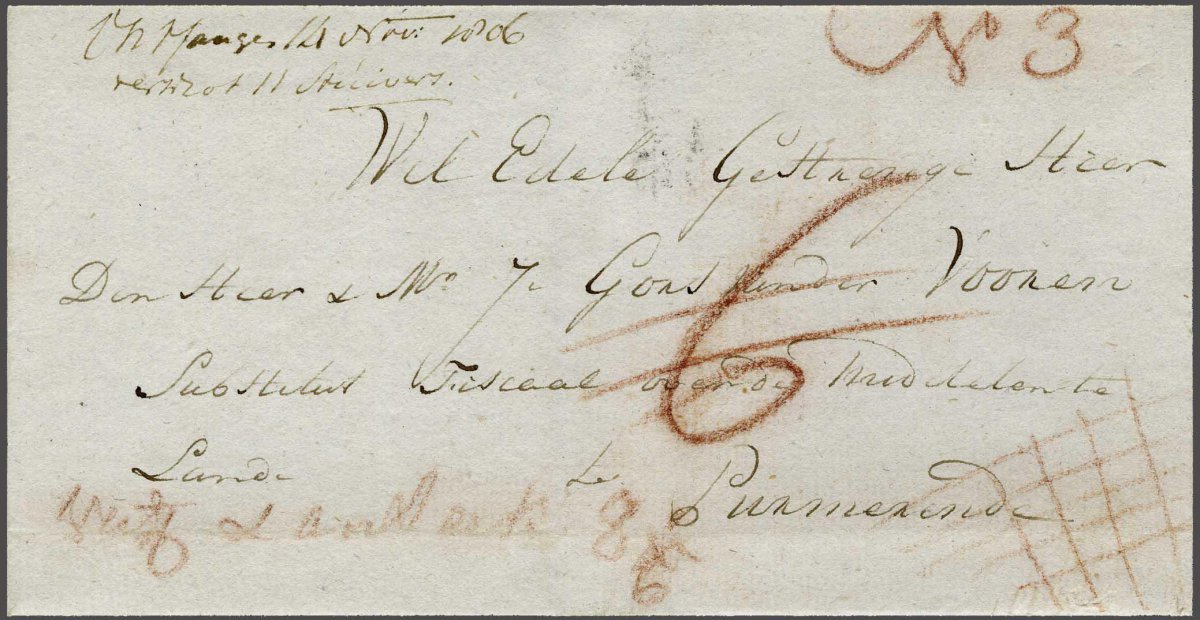 14 Nov: 1806
verschot 11 Stuivers.
No 3
Wel Edele Gestrenge Heer
6
Den Heer & Mr J: Gons Voonen
Substitut Fiscaal over de Middelen te
Lande te Purmerende
&
6